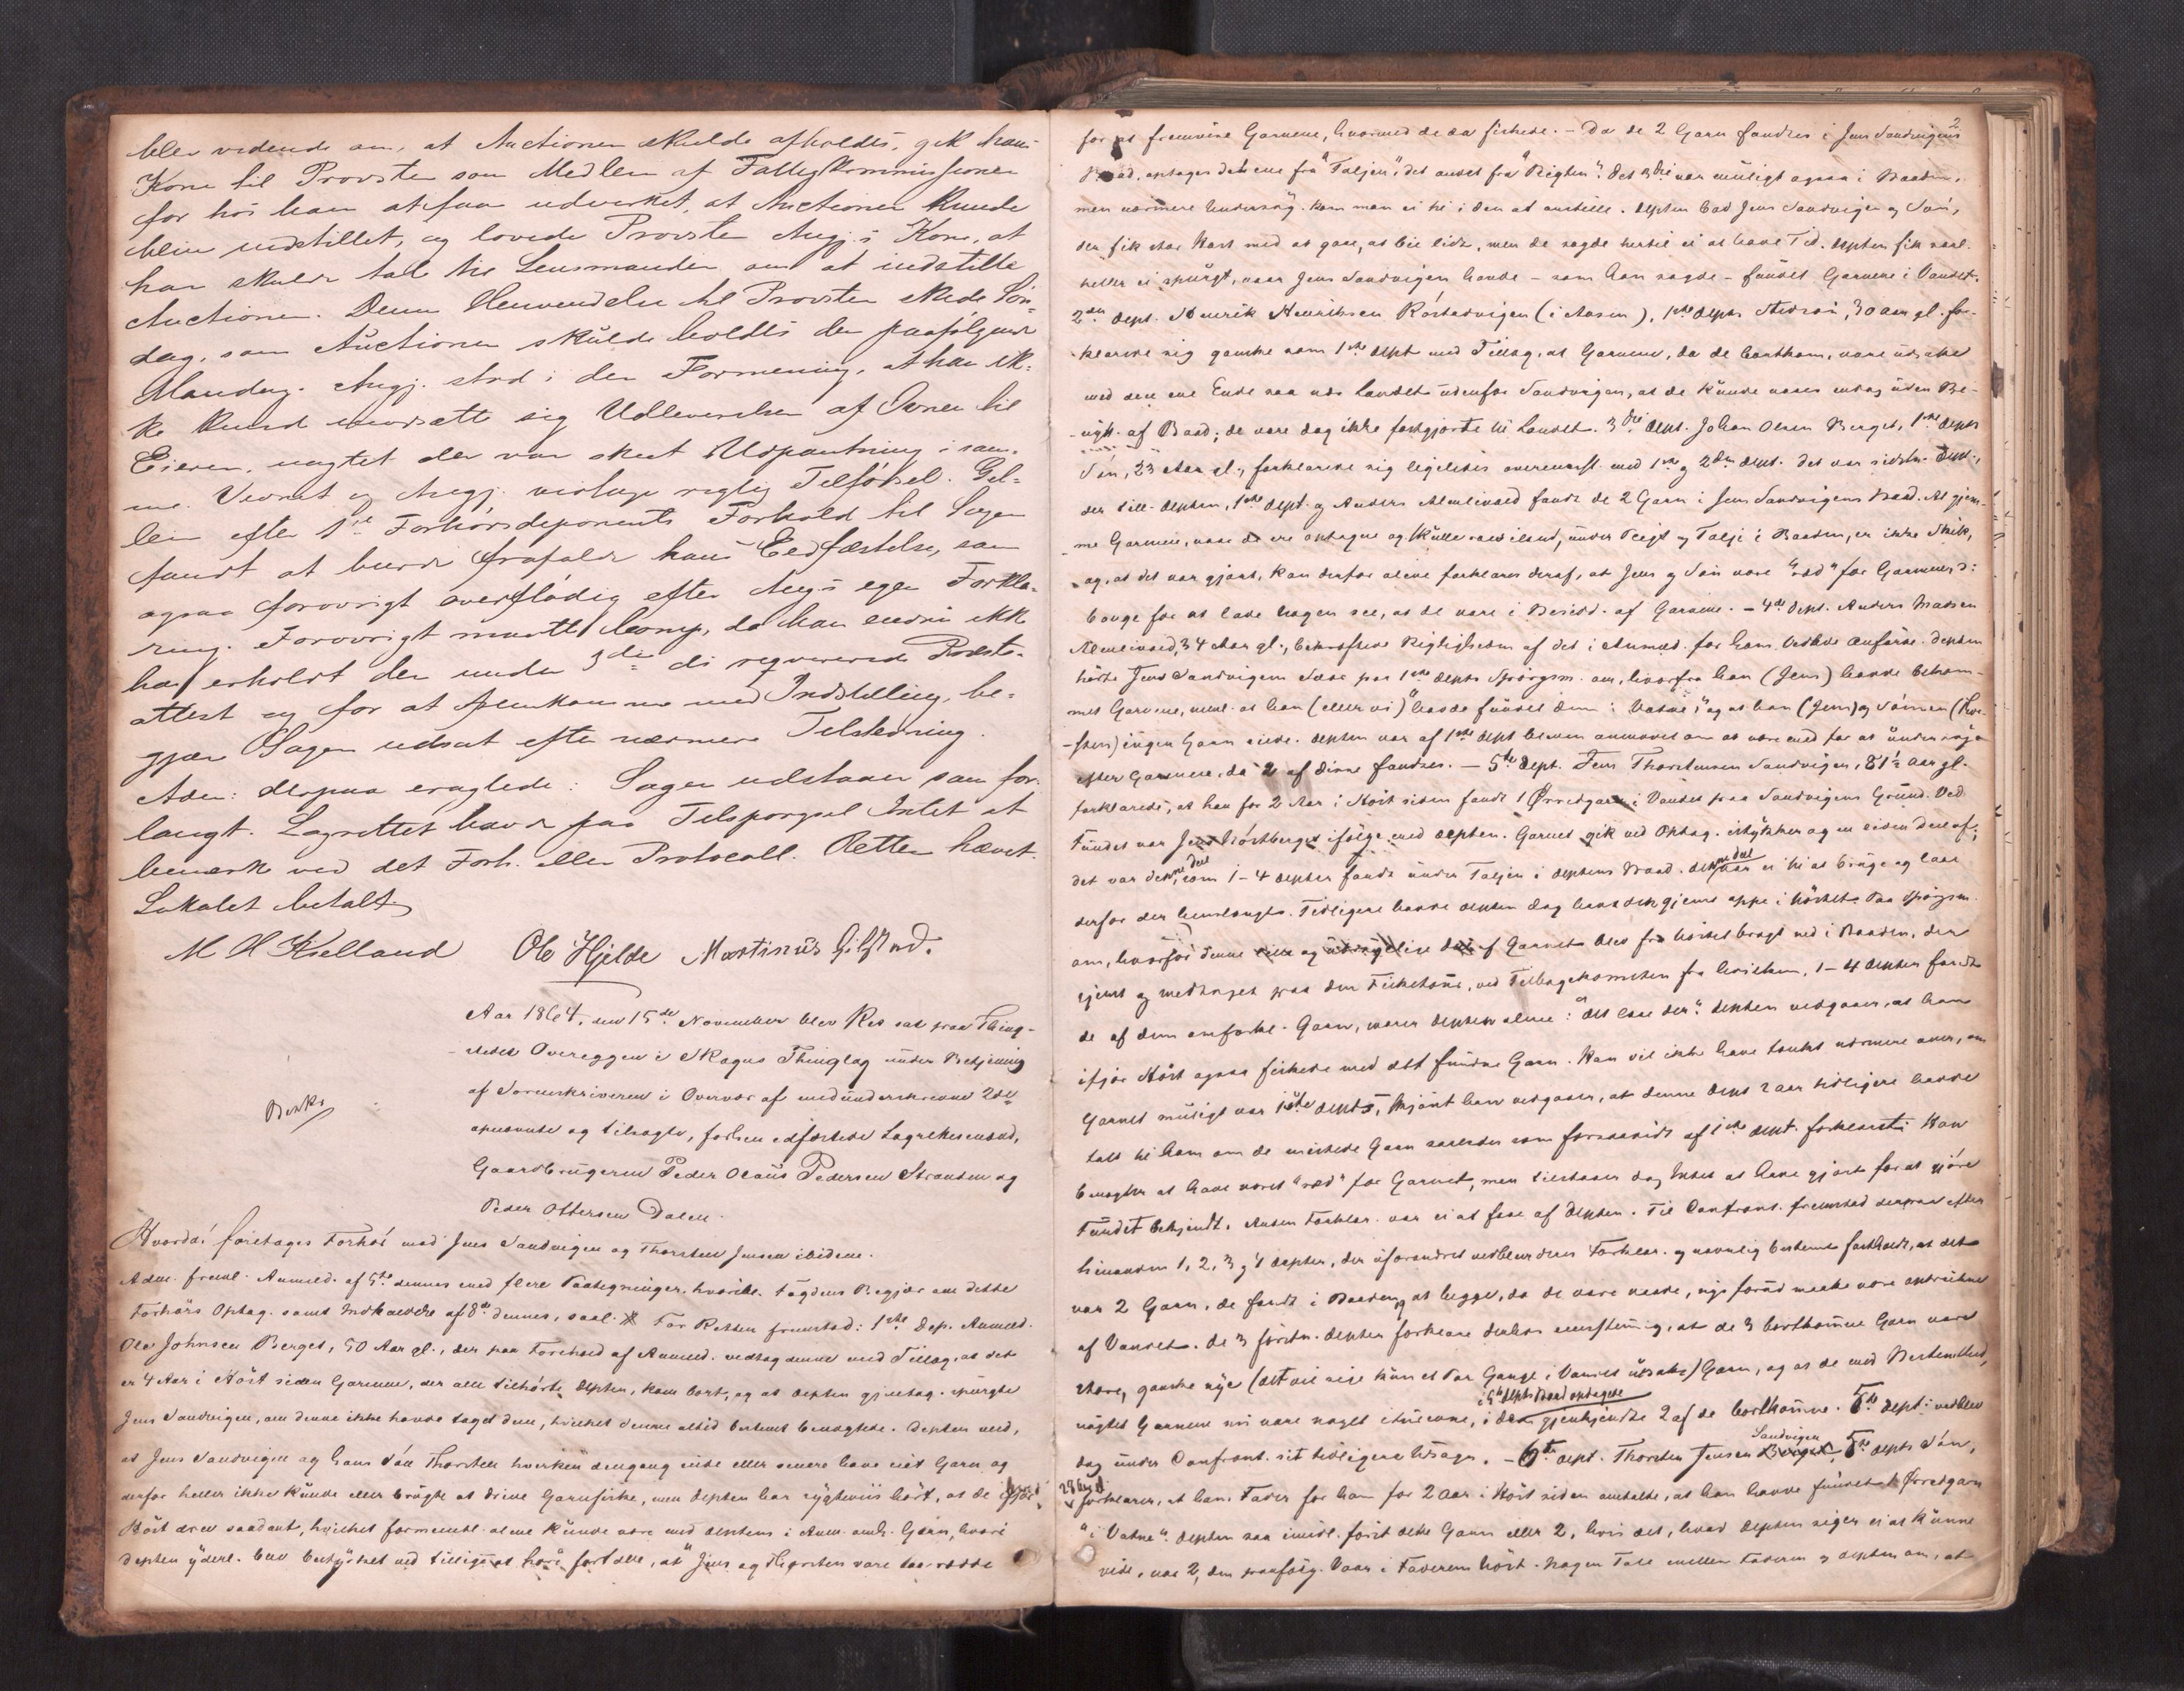 blev vidende om, at Auctionen skulde afholdes, gik hans
Kone til Provsten som Medlem af Fattigkommissionen
for hos ham at faa udvirket, at Auctionen kunde
blive indstillet, og lovede Provsten Angj.s Kone, at
han skulde tale til Lensmanden om at indstille
Auctionen. Denne Henvendelse til Provsten skede Søn-
dag, som Auctionen skulde holdes den paafølgende
Mandag. Angj. stod i den Formening, at han ik-
ke kunde modsætte sig Udleverelsen af Ovnen til
Eieren, uagtet der var skeet Udpantning i sam-
me. Vedtat og Angj. vedtoge rigtig Tilførsel.
efter 1ste Forhørsdeponents Forhold til Sagen
fandt at burde frafalde hans Eedfæstelse, som
ogsaa forøvrigt overflødig efter Angj.s egen Forkla-
ring. Forøvrigt maatte Comp., da han endnu ikke
har erholdt den under 3die ds reqvirerede Præste-
attest og for at fremkomme med Indstilling, be-
gjære Sagen udsat efter nærmere Tilstedning.
Adm: derpaa eragtede: Sagen udstaaer som for-
langt. Lagrettet havde paa Tilspørgsel Intet at
bemærke ved det Forh. eller Protocoll. Retten hævet.
Lokalet betalt
M H Kielland Ole Hjelde Martinus Gilstad.
Aar 1864, den 15de November blev Ret sat paa Thing-
stedet Overeggen i Skogns Thinglag under Betjening
af Sorenskriveren i Overvær af medunderskrevne 2de
opnævnte og tilsagte, forhen edfæstede Lagrettesmænd,
Gaardbrugerne Peder Olaus Pedersen Stranden og
Peder Ottersen Dalen.
Hvorda: foretages Forhør mod Jens Sandvigen og Thorsten Jensen ibidem.
Adm. freml. Anmeld. af 5te dennes med flere Paategninger, hvoribl. Fogdens Begjær om dette
Forhørs Optag. samt af 8de dennes, saal. For Retten fremstod: 1ste Dep. Anmeld.
Ole Johnsen Berget, 50 Aar gl., der paa Forehold af Anmeld. vedtog denne med Tillæg, at det
er 4 Aar i Høst siden Garnene, der alle tilhørte Depten, kom bort, og at Depten gjentag. spurgte
Jens Sandvigen, om denne ikke havde taget dem, hvilket denne altid bestemt benegtede. Depten veed,
at Jens Sandvigen og hans Søn Thorsten hverken dengang eiede eller senere have eiet Garn og
derfor heller ikke kunde eller brugte at drive Garnfiske, men Depten har rygteviis hørt, at de ifjor
Høst drev saadant, hvilket formentl. alene kunde være med Deptens i Anm. omh. Garn, hvori
Depten yderl. blev bestyrket ved tilligemed at høre fortælle, at Jens og Thorsten vare saa rædde
2
for at fremvise Garnene, hvormed de da fiskede. – Da de 2 Garn fandtes i Jens Sandvigens
Baad, optoges det ene fra "Taljen", det andet fra "Rigten". Det 3die var muligt ogsaa i Baaden,
men nærmere Undersøg. kom man ei til i den at anstille. Depten bad Jens Sandvigen og Søn,
der fik stor Hast med at gaae, at bie lidt, men de sagde hertil ei at have Tid. Depten fik saal.
heller ei spurgt, naar Jens Sandvigen havde – som han sagde – fundet Garnene i Vandet.
2den Dept. Henrik Henriksen Röstadvigen (i Aasen), 1ste Depts Stedsøn, 30 Aar gl. for-
klarede sig ganske som 1ste Dept med Tillæg, at Garnene, da de bortkom, vare udsatte
med den ene Ende saa nær Landet udenfor Sandvigen, at de kunde naaes endog uden Be-
nytt. af Baad; de vare dog ikke fastgjorte til Landet. 3die Dept. Johan Olsen Berget, 1ste Depts
Søn, 23 Aar gl., forklarede sig ligeledes overeensst. med 1ste og 2den Dept. Det var sidstn. Dept.,
der till. Depten, 1ste Dept. og Anders Almlivald fandt de 2 Garn i Jens Sandvigens Baad. At gjem-
me Garnene, naar de ere optagne og skulle roes iland, under Teigt og Talje i Baaden, er ikke Skik,
og, at det var gjort, kan derfor alene forklares deraf, at Jens og Søn vare "ræd" for Garnene d:
bange for at lade nogen see, at de vare i Besidd. af Garnene. – 4de Dept. Anders Madsen
34 Aar gl., bekræftede Rigtigheden af det i Anmeld. for ham Vedkomne Anførte. Depten
hørte Jens Sandvigen svare paa 1ste Depts Spørgsm. om, hvorfra han (Jens) havde bekom-
met Garnene, neml. at han (eller vi) havde fundet dem i Vatne," og at han (Jens) og Sønnen (Thor-
sten) ingen Garn eiede. Depten var af 1ste Dept bleven anmodet om at være med for at undersøge
efter Garnene, da 2 af disse fandtes. – 5te Dept. Jens Thorstensen Sandvigen, 81½ Aar gl.
forklarede, at han for 2 Aar i Høst siden fandt 1 Ørredgarn i Vandet paa Sandvigens Grund. Ved
Fundet var Jens ifølge med Depten. Garnet gik ved Optag. istykker og en liden Deel af,
det var denne Deel, som 1–4 Depter fandt under Taljen i Deptens Baad. Denne Deel var ei til at bruge og laae
derfor der henslængt. Tidligere havde Depten dog havt den gjemt oppe i Nöstet. Paa Spørgsm.
om, hvorfor denne lille og ubrugelige Deel af Garnet blev fra Nöstet bragt ned i Baaden, der
gjemt og medtaget paa den Fisketour, ved Tilbagekomsten fra hvilken, 1–4 Depter fandt
de af dem omforkl. Garn, svarer Depten alene: "det laae der". Depten vedgaaer, at han
ifjor Høst ogsaa fiskede med det fundne Garn. Han vil ikke have tænkt nærmere over, om
Garnet muligt var 1ste Depts, skjønt han vedgaaer, at denne Dept 2 Aar tidligere havde
talt til ham om de mistede Garn saaledes som forananført af 1ste Dept. forklaret. Han
benegter at have været "ræd" for Garnet, men tilstaaer dog Intet at have gjort for at gjøre
Fundet bekjendt. Anden Forklar. var ei at faae af Depten. Til Confront. fremstod derpaa efter
hinanden 1, 2, 3 og 4 Depter, der uforandret vedbleve deres Forklar. og navnlig bestemt fastholdt, at det
var 2 Garn, de fandt i Baaden, og at begge, da de vare vaade, nys forud maatte være optrukne
af Vandet. De 3 förstn. Depter forklare derhos eenstemmig, at de 3 bortkomne Garn vare
store, ganske nye (det vil sige kun et Par Gange i Vandet udsatte) Garn, og at de med Bestemthed,
uagtet Garnene nu vare noget iturevne, i de i 5te Depts Baad optagne gjenkjendte 2 af de bortkomne. 5te Dept. vedblev
dog under Confront. sit tidligere Udsagn. – 6te Dept. Thorsten Jensen Sandvigen, 5te Depts Søn,
28 Aar gl. forklarer, at hans Fader for ham for 2 Aar i Høst siden omtalte, at han havde fundet 1 Ørredgarn
"i Vatne". Depten saa imidl. først dette Garn eller 2, hvis det, hvad Depten siger ei at kunne
vide, var 2, den paafølg. Vaar i Faderens Nöst. Nogen Tale mellem Faderen og Depten om, at